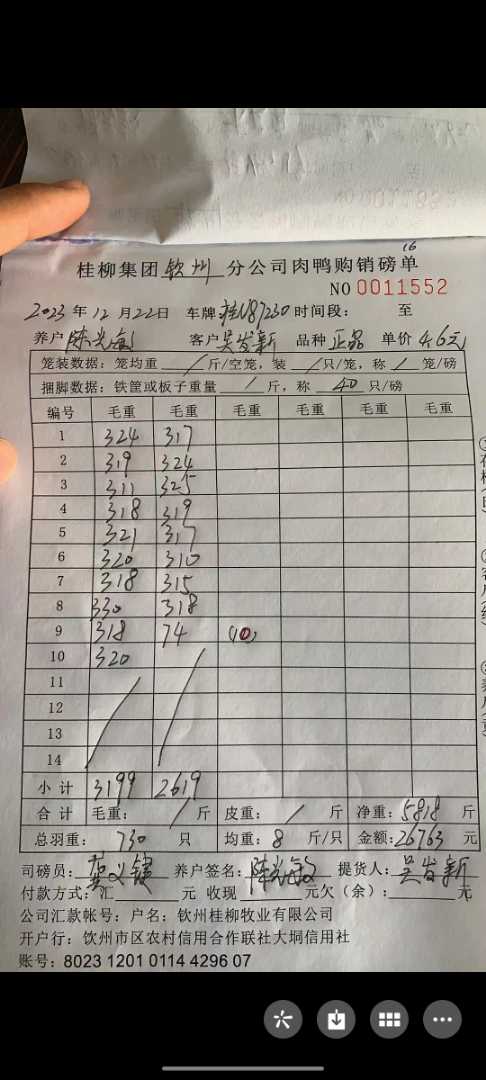 16
桂柳集团钦州分公司肉鸭购销磅单
NO 0011552
2023年12月22日 车牌:桂N87230 时间段: 至
养户 陈光敏 客户 吴发新 品种 正品 单价 4.6元
笼装数据:笼均重 / 斤/空笼,装 / 只/笼,称 / 笼/磅
捆脚数据:铁筐或板子重量 / 斤,称 40 只/磅
编号 毛重 毛重 毛重 毛重 毛重 毛重
1 324 317
2 319 324
3 311 325
4 318 319
5 321 317
6 320 310
7 318 315
8 330 318
9 318 74 (10)
10 320
11
12
13
14
小计 3199 2619
合计 毛重: / 斤 皮重: / 斤 净重:5818 斤
总羽重: 730 只 均重:8 斤/只 金额:26763 元
司磅员: 养户签名:陈光敏 提货人:吴发新
付款方式:汇 元 收现 元欠(余): 元
公司汇款帐号:户名:钦州桂柳牧业有限公司
开户行:钦州市区农村信用合作联社大垌信用社
账号:8023 1201 0114 4296 07